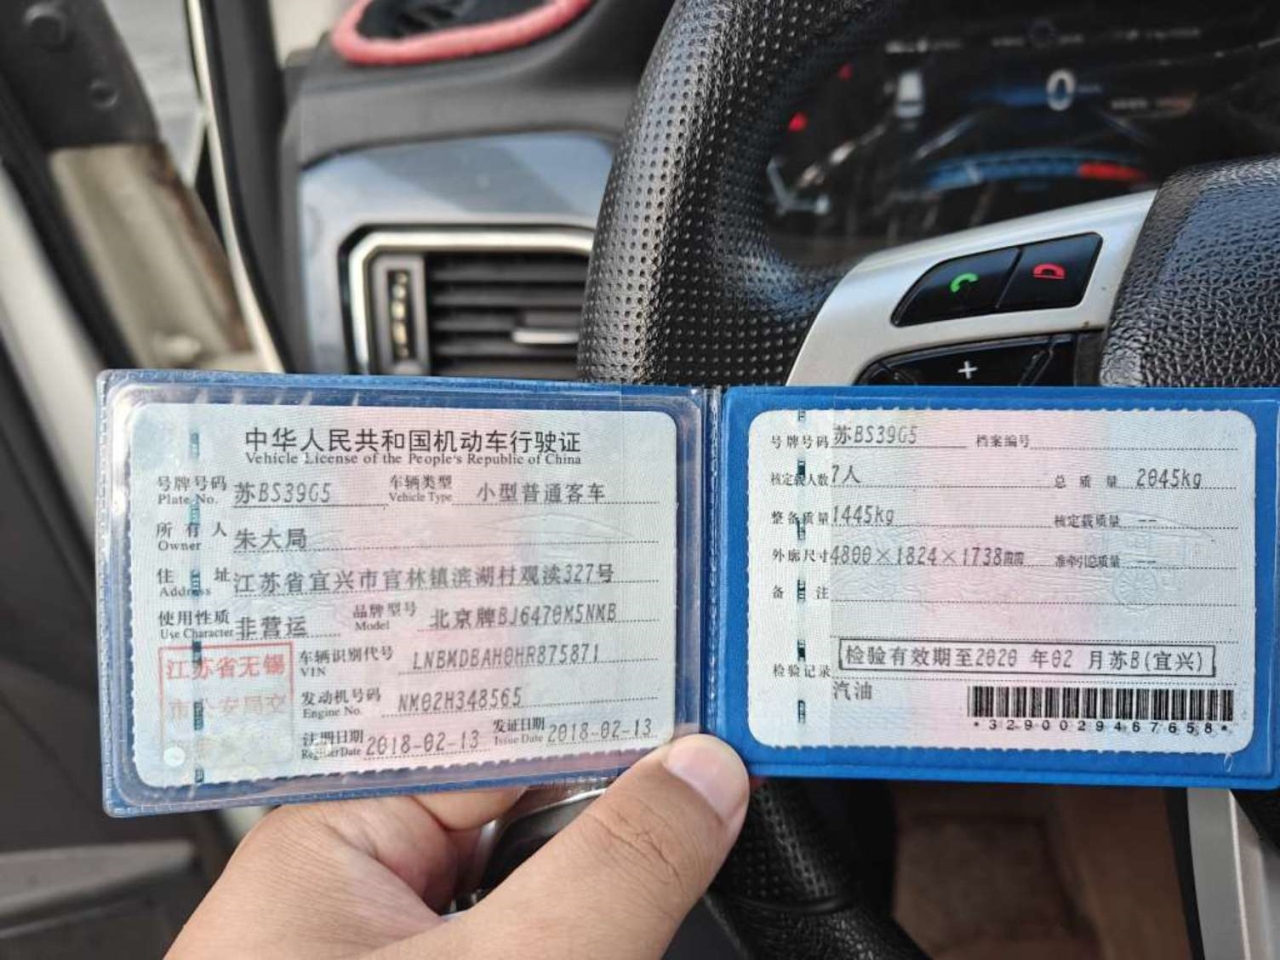 中华人民共和国机动车行驶证
Vehicle License of the People's Republic of China
号牌号码 苏BS39G5 车辆类型 小型普通客车
Plate No. Vehicle Type
所有人 朱大局
Owner
住址 江苏省宜兴市官林镇滨湖村观渎327号
Address
使用性质 非营运 品牌型号 北京牌BJ6470M5NMB
Use Character Model
江苏省无锡
市公安局交
车辆识别代号 LNBMDBAH0HR875871
VIN
发动机号码 NM02H348565
Engine No.
注册日期 2018-02-13 发证日期 2018-02-13
Register Date Issue Date
号牌号码 苏BS39G5 档案编号
核定载人数 7人 总质量 2045kg
整备质量 1445kg 核定载质量 --
外廓尺寸 4800×1824×1738mm 准牵引总质量 --
备注
检验记录 检验有效期至2020 年02 月苏B(宜兴)
汽油
*3290029467658*
0
+